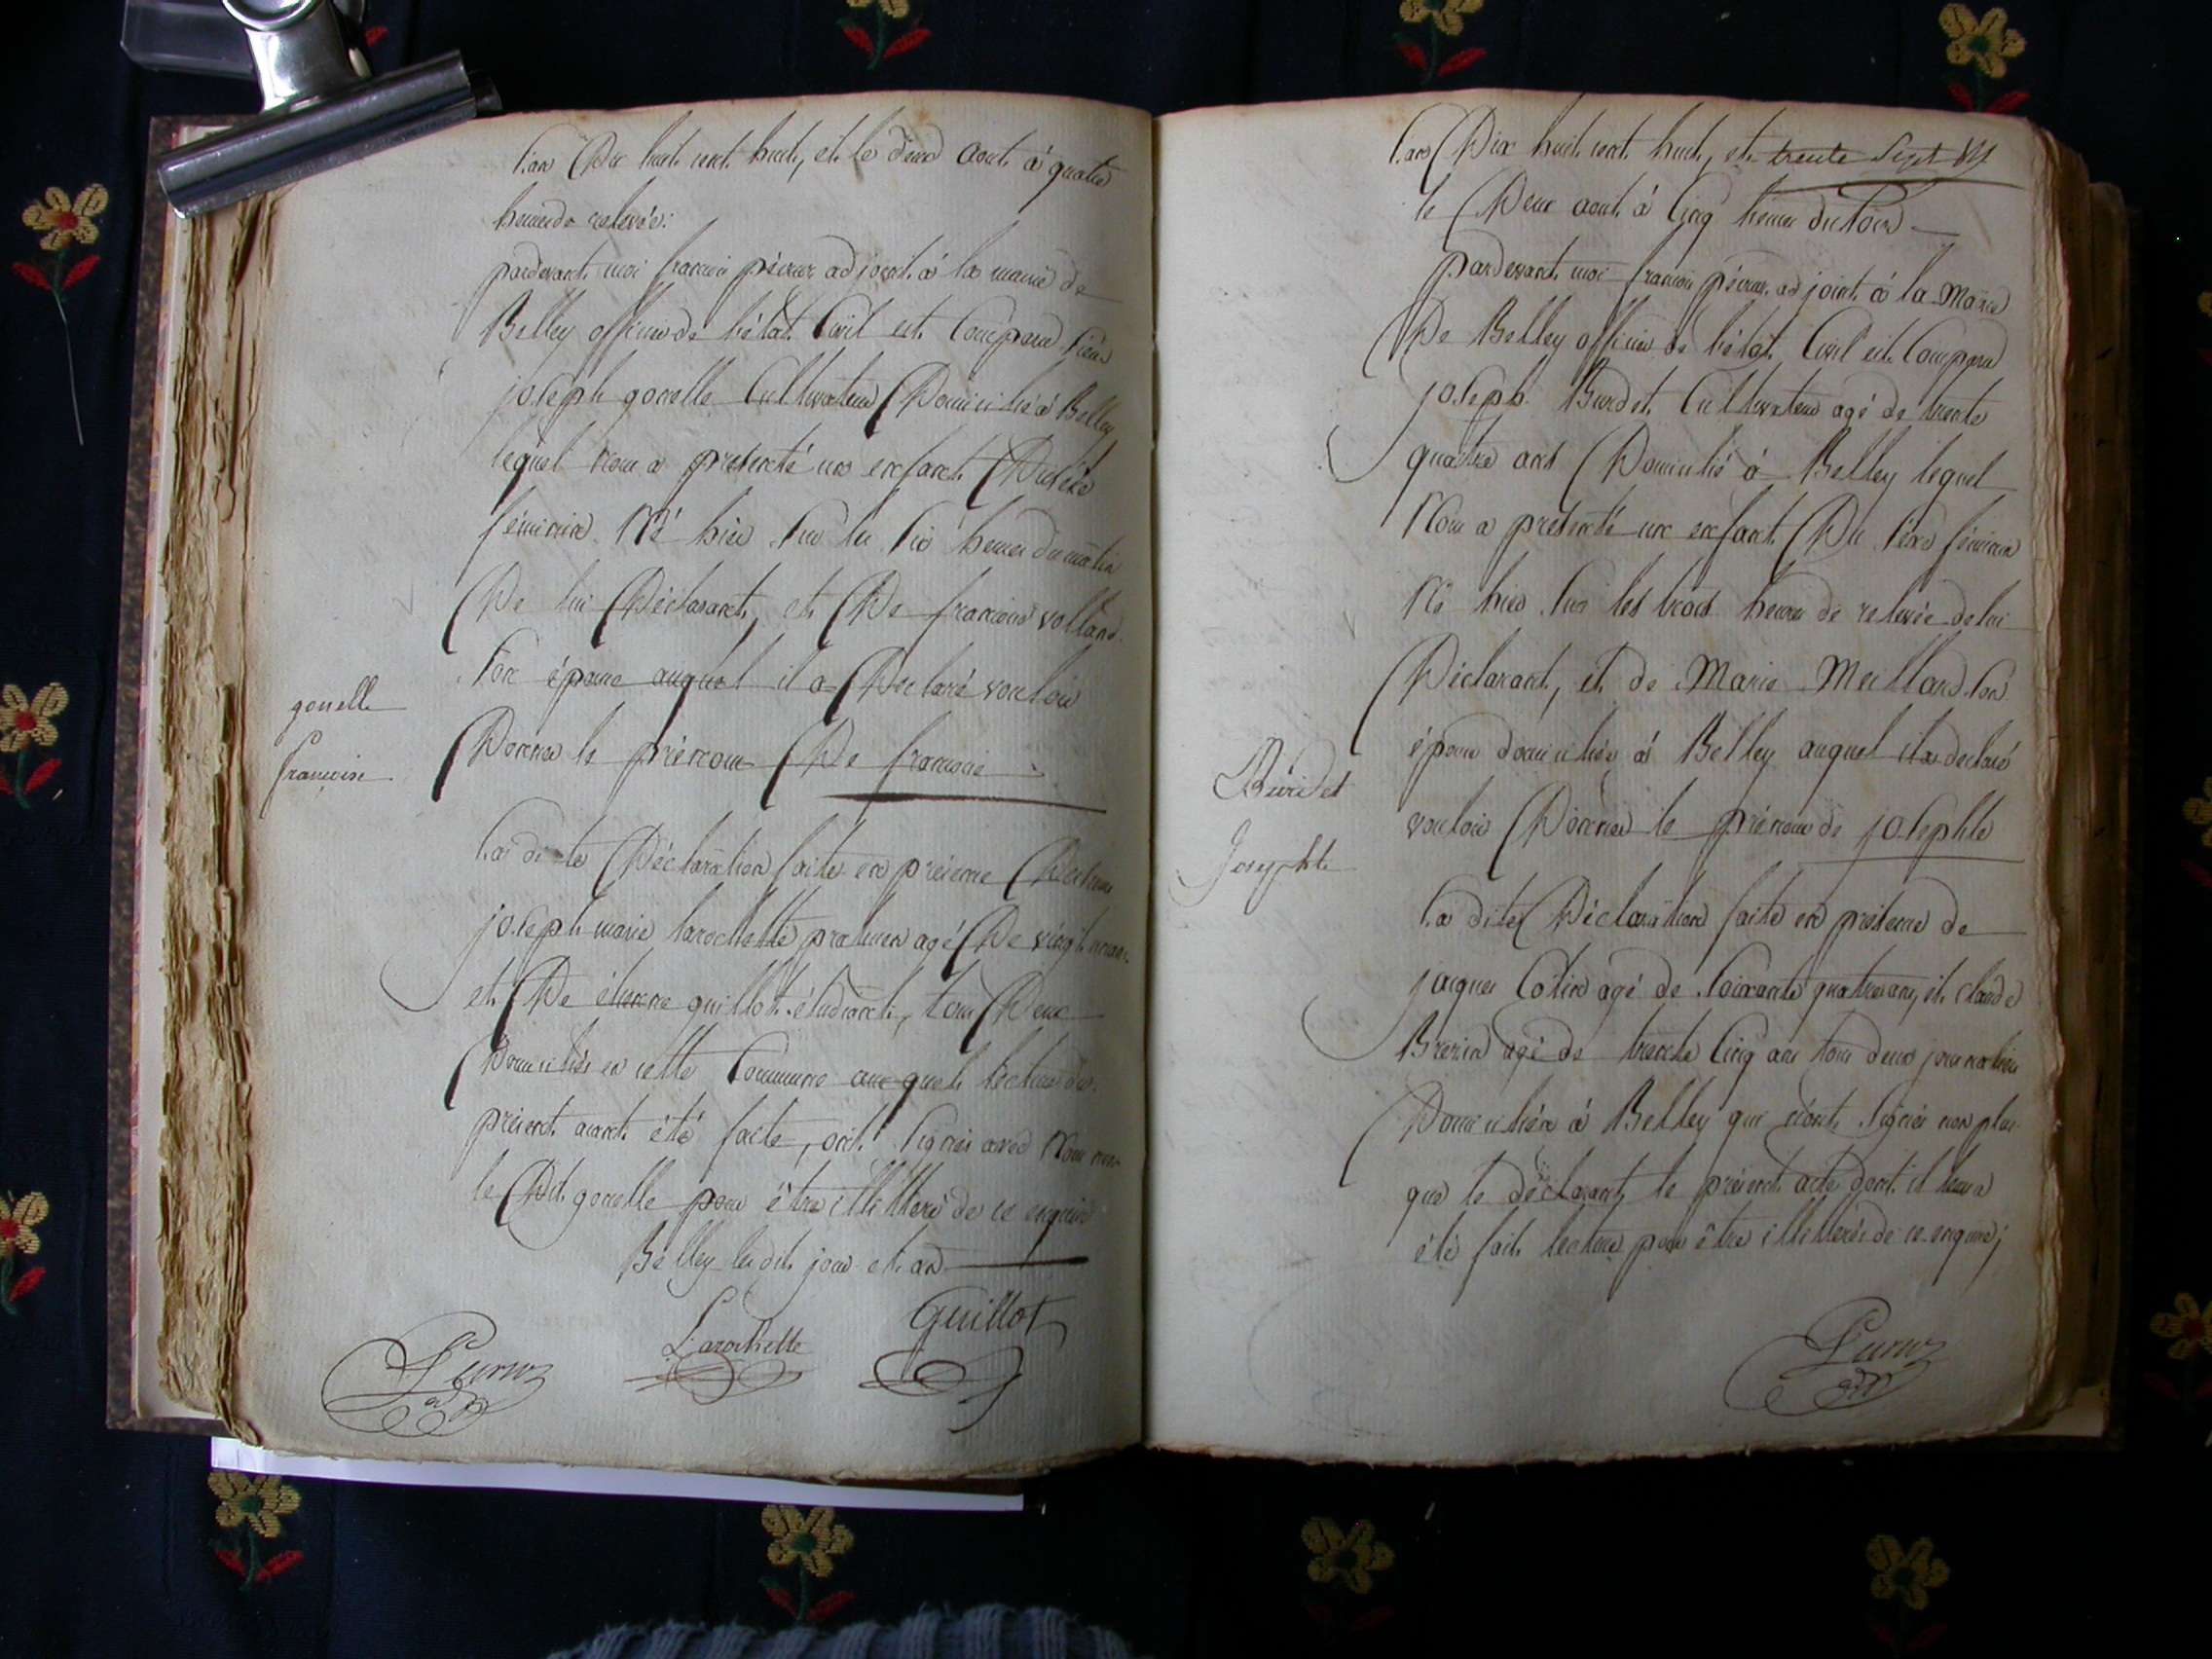 L'an Dix huit cent huit, et le deux aout à quatre
heures de relevée:
pardevant moi françois péroux adjoint à la mairie de
Belley officier de l'état Civil est Comparu Sieur
joseph gonelle Cultivateur Domicilié à Belley
lequel nous a presenté un enfant Du Sexe
féminin Né hier Sur les Six heures du matin
De lui Déclarant, et De françoise volland
Son épouse auquel il a Déclaré vouloir
Donner le prénom De françoise
gonelle
françoise
La dite Déclaration faite en présence De
joseph marie larochette praticien agé De vingt neuf
et De étienne guillot étudiant, tous Deux
Domiciliés en cette Commune auxquels lecture du
présent aiant été faite, ont Signés avec Nous non
le Dt. gonelle pour être illitteré de ce enquis
Belley lesdits jour et an
Larochette
Guillot
L'an Dix huit cent huit, et trente Sept
le Deux aout à Cinq heures du Soir
pardevant moi françois péroux adjoint à la Mairie
De Belley officier de l'état Civil est Comparu
joseph Burdet Cultivateur agé de trente
quatre ans Domicilié à Belley lequel
Nous a presenté un enfant Du Sexe féminin
Né hier Sur les trois heures de relevée de lui
Déclarant, et de Marie Meilland Son
épouse domiciliée à Belley auquel il a declaré
vouloir Donner le prénom de josephte
Burdet
Josephte
La dite Déclaration faite en présence de
jacques Cotin agé de Soixante quatre ans, et claude
Brezin agé de trente Cinq ans tous deux journaliers
Domiciliés à Belley qui n'ont Signés non plus
que le déclarant, le présent acte dont il leur a
été fait lecture pour être illitterés de ce enquis;